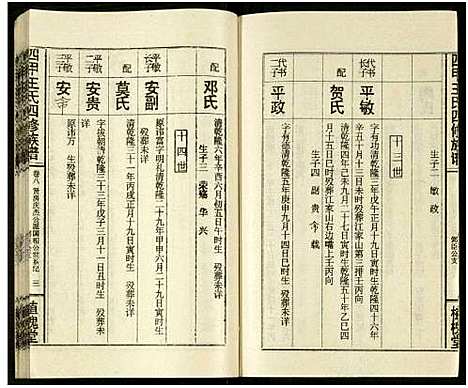 四甲王氏四修族譜
生子二 敏 政
十三世
代书長子
平敏
字有功清乾隆二年戊午正月十八日寅时生清乾隆四十六年
辛丑十三月十三日未时殁葬江家山右边嘴上壬丙向
配
贺氏
清乾隆四年己未九月二十七日寅时生清乾隆五十年乙巳四
月十五日寅时殁葬江家山壬丙向
生子四 副 贵
代书二子
平政
字有德清乾隆五年庚申九月十四日巳时生 殁葬未详
配
邓氏
清乾隆六年辛酉六月初五日午时生 殁葬未详
生子三 荣 华 兴
十四世
平敏長子
安副
原讳富字明礼清乾隆二十九年甲申六月二十九日寅时生
殁葬未详
配
莫氏
清乾隆三十一年丙戌正月十九日寅时生 殁葬未详
平敏二子
安贵
字拔朝清乾隆三十三年戊子三月十一日丑时生 殁葬未详
平敏三子
安
原讳万 生殁葬未详
四甲王氏四修族譜
卷八
植槐堂